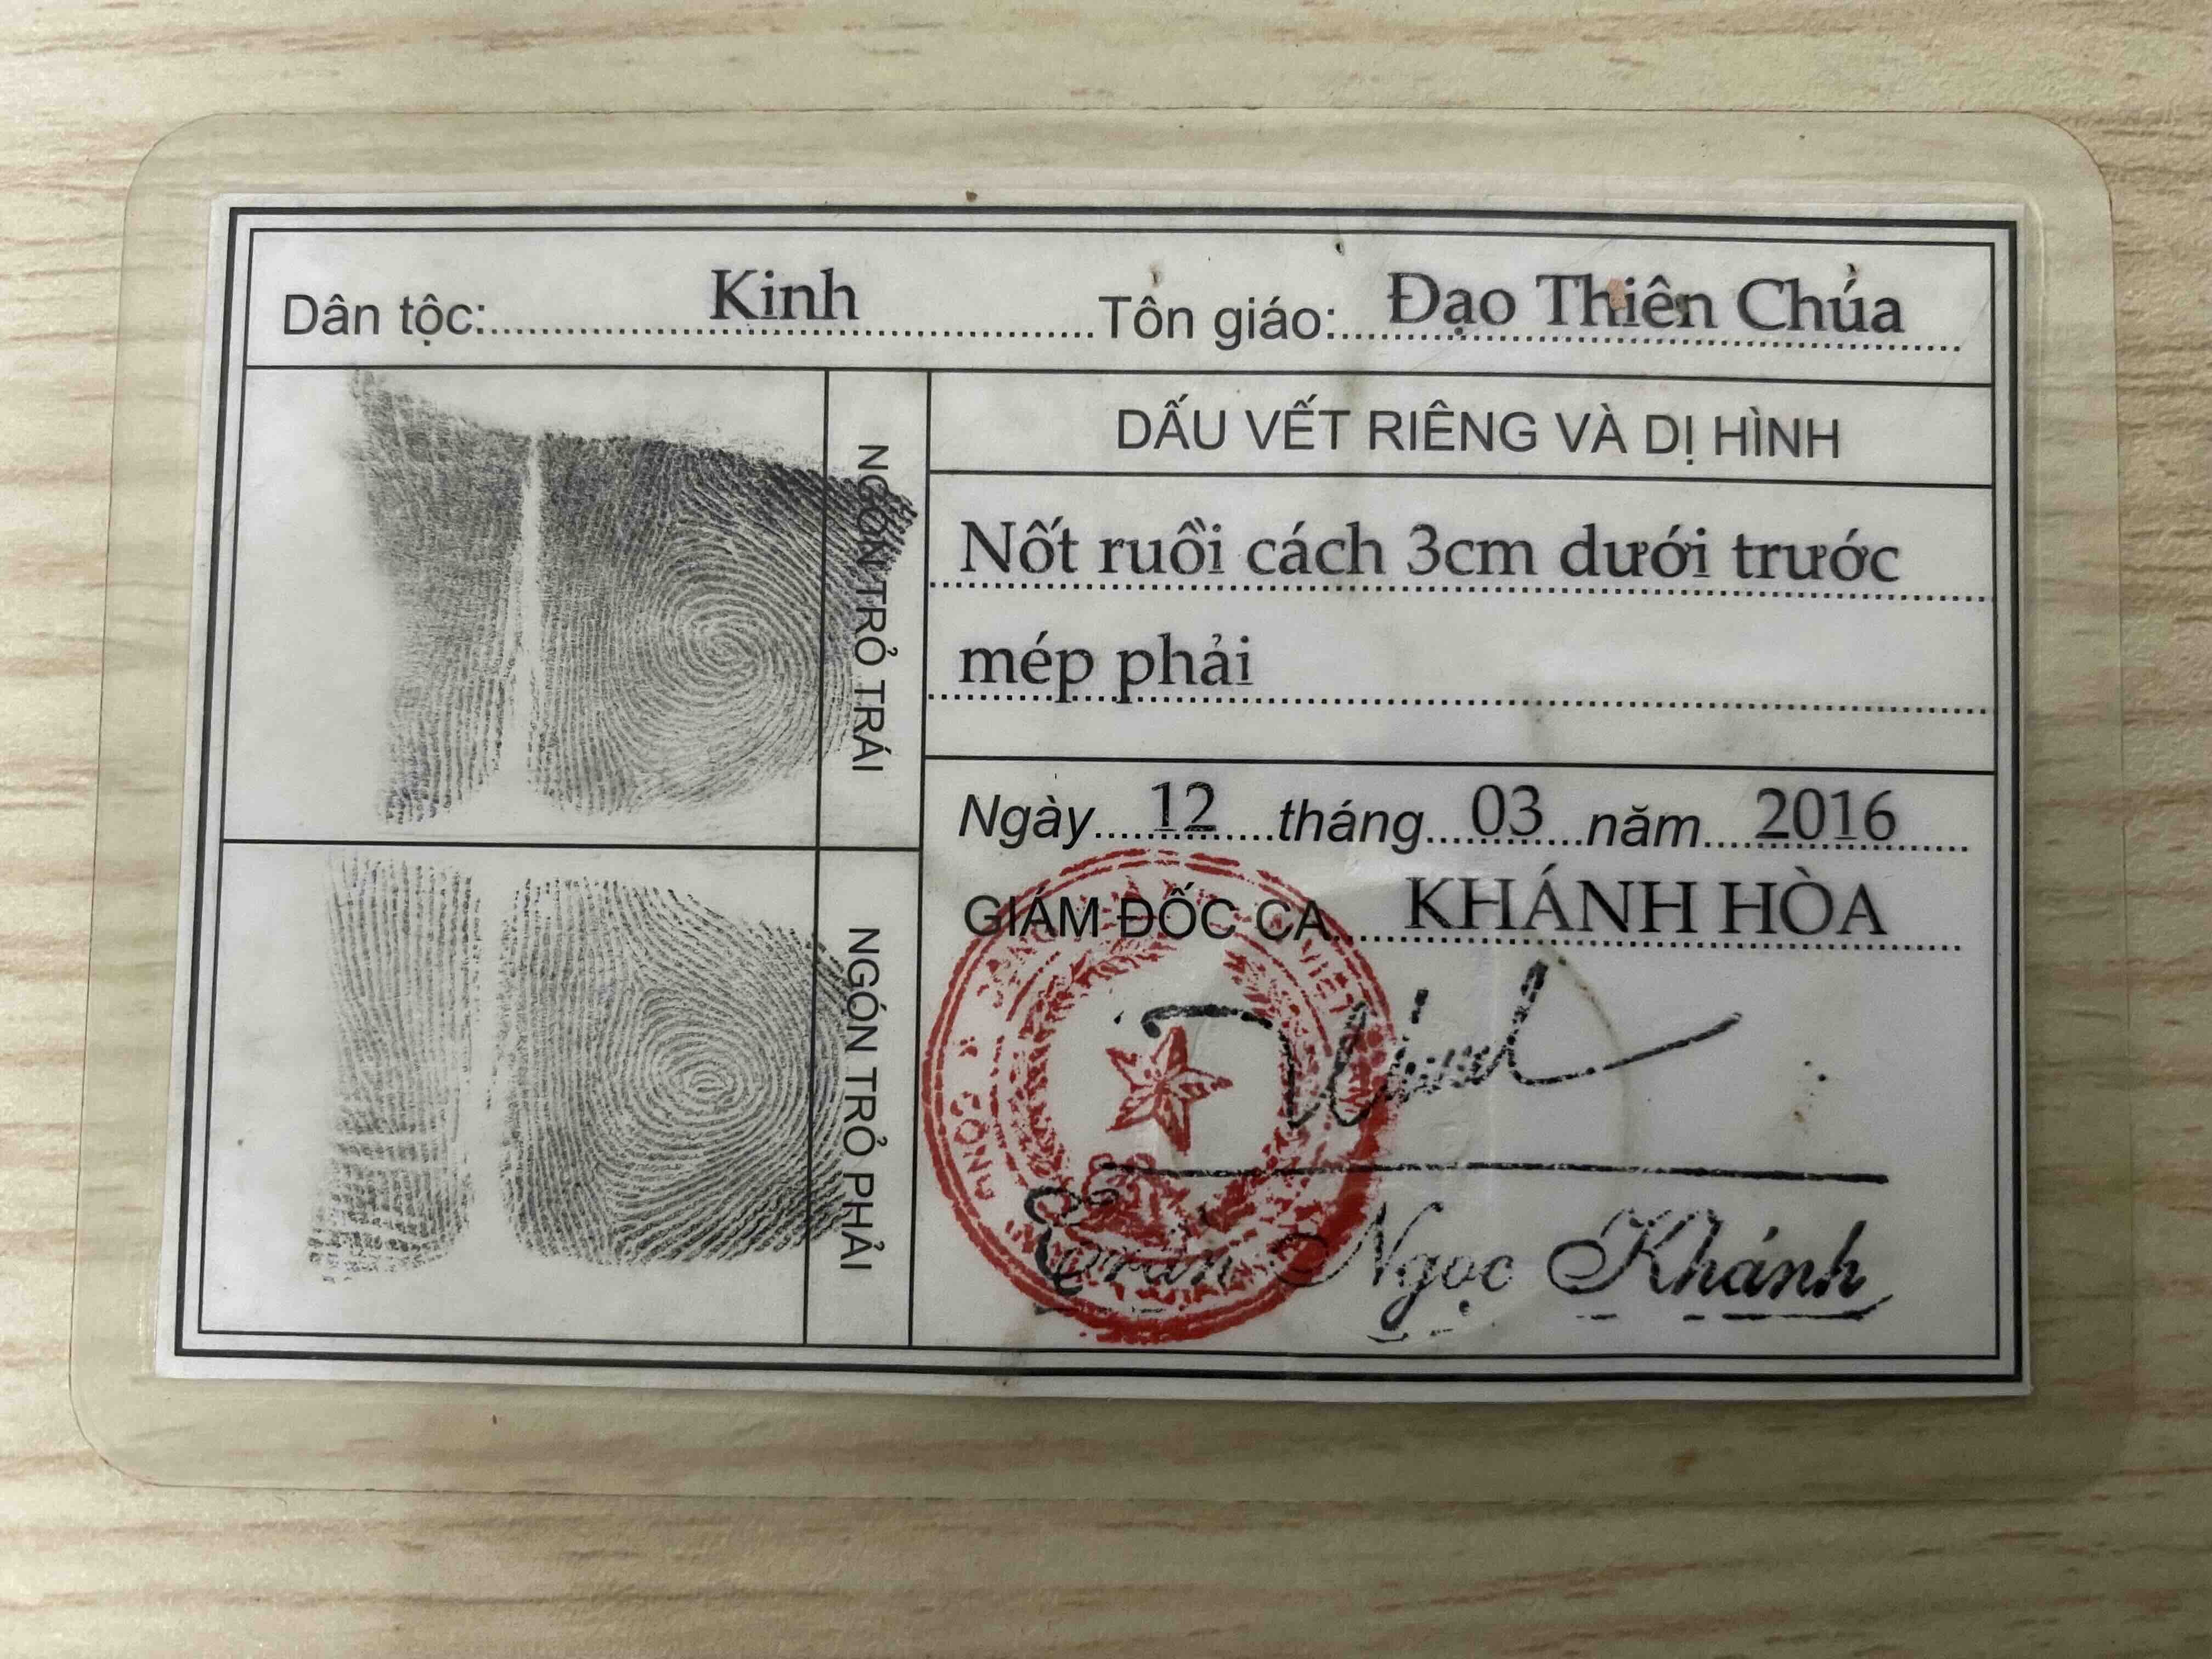 Dân tộc: Kinh Tôn giáo: Đạo Thiên Chúa
NGÓN TRỎ TRÁI
DẤU VẾT RIÊNG VÀ DỊ HÌNH
Nốt ruồi cách 3cm dưới trước
mép phải
NGÓN TRỎ PHẢI
Ngày 12 tháng 03 năm 2016
GIÁM ĐỐC CA KHÁNH HÒA
Trần Ngọc Khánh